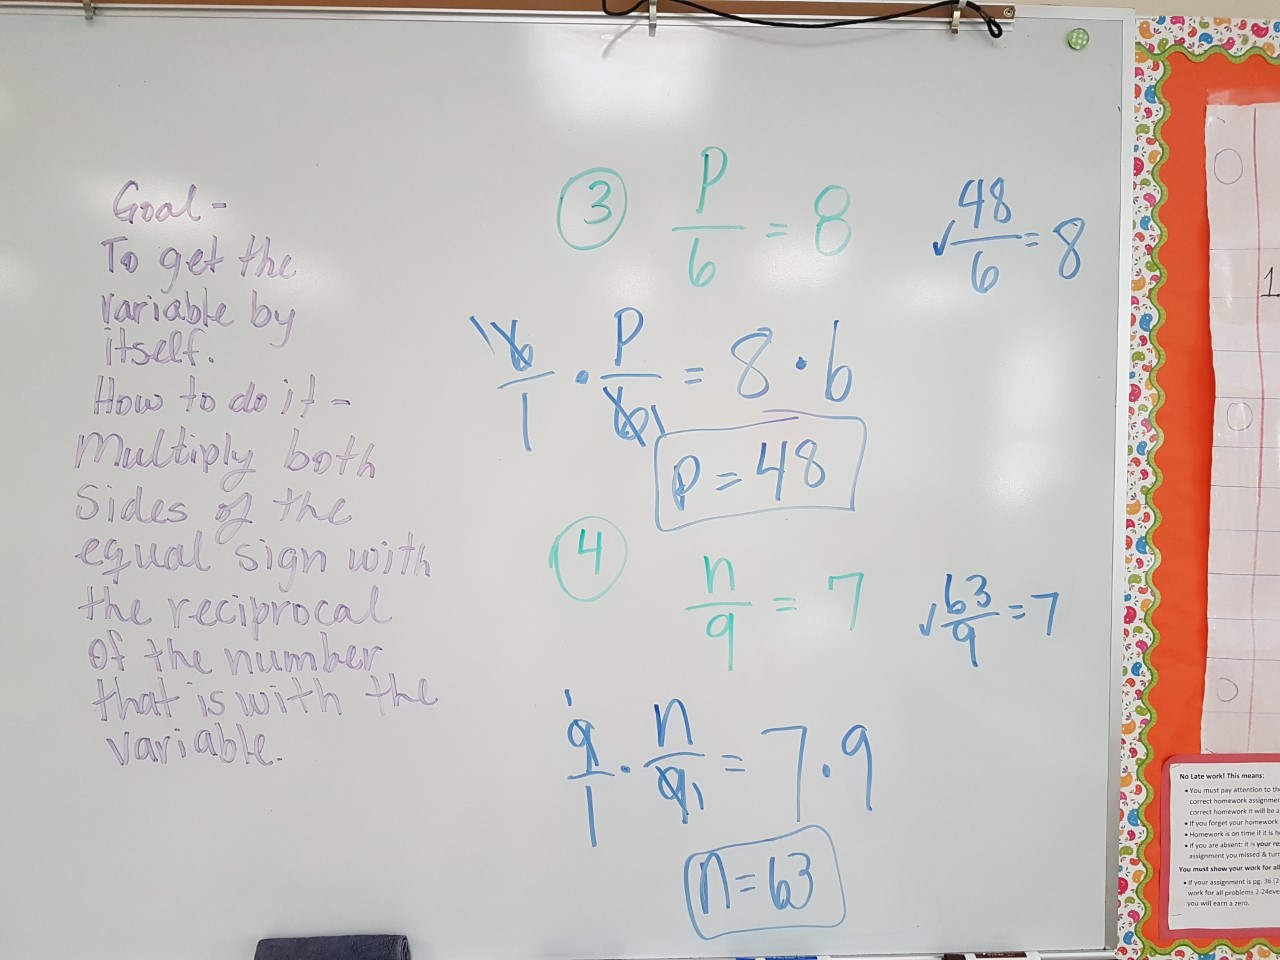 Goal -
To get the
variable by
itself.
How to do it -
Multiply both
sides of the
equal sign with
the reciprocal
of the number
that is with the
variable.
③ p/6 = 8 ✓ 48/6 = 8
1 6/1 · p/6 1 = 8 · 6
p = 48
④ n/9 = 7 ✓ 63/9 = 7
1 9/1 · n/9 1 = 7 · 9
n = 63
1
No Late work! This means:
• You must pay attention to
correct homework
correct homework it will be a
• If you forget your homework
• Homework is on time if it is
• If you are absent: it is your
assignment you missed &
You must show your work for all
• If your assignment is pg. 36
work for all problems
you will earn a zero.